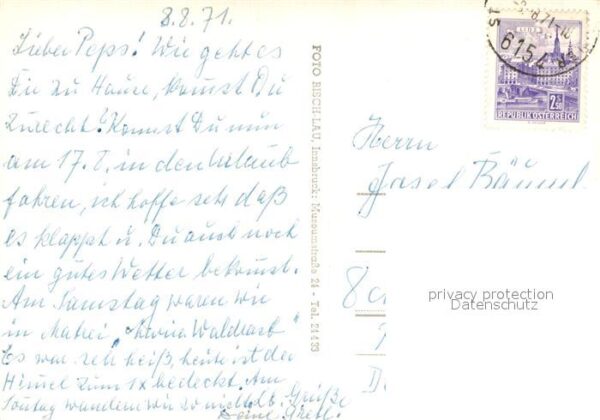 8.8.71.
Lieber Peps! Wie geht es
Dir zu Hause, kommst Du
zurecht? Kannst Du nun
am 17.8. in den Urlaub
fahren, ich hoffe sehr daß
es klappt u. Du auch noch
ein gutes Wetter bekomst.
Am Samstag waren wir
in Matrei "Maria Waldrast"
Es war sehr heiß, heute ist der
Himel zum 1x bedeckt. Am
Sontag wandern wir so
Grüße
Deine Gretl.
FOTO RISCH-LAU, Innsbruck: Museumstraße 24 - Tel. 24 4 33
6154
LINZ
2.50
REPUBLIK ÖSTERREICH
Herrn
Josef Bäuml
privacy protection
Datenschutz